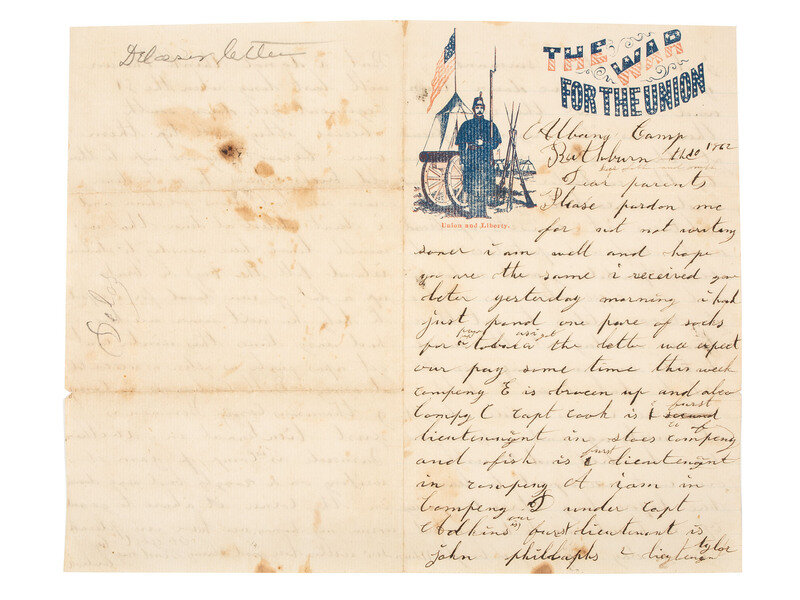 Delasen letter
Deloy
THE WAR
FOR THE UNION
Union and Liberty.
Albany Camp
Rathburn the 10 1862
Dear parents
Please pardon me
for not not writing
soner i am well and hope
you are the same i received you
leter yesterday morning i had
just pond one pare of socks
for tobaco the letter we expect
our pay some time this week
compeny E is brocen up and also
Compy C capt cook is first
lieutennant in compeny
and ofish is first lieutenant
in compeny A i am in
Compeny D under capt
Adkins our first lieutenant is
john phillophs 2 tylor